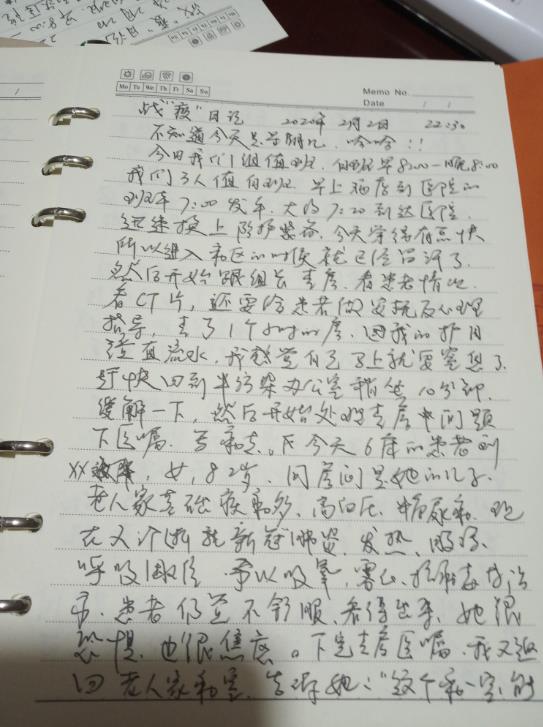 Memo No.
Mo Tu We Th Fr Sa Su
Date / /
战"疫"日记 2020年 2月2日 22:30
不知道今天是 哈哈!!
今日我们1组值班, 白班早8:00-晚8:00
我们3人值白班. 早上酒店到医院的
班车7:00发车, 大约7:20到达医院.
迅速换上防护装备, 今天穿得有点快
所以进入病区的时候就已经出汗了.
然后开始跟组长查房, 看患者情况.
看CT片, 还要给患者做安抚及心理
指导, 查了1个小时的房, 因我的护目
镜直流水, 我感觉自己马上就要窒息了.
赶快回到半污染办公室稍坐10分钟.
缓解一下, 然后开始处理查房中问题
下医嘱. 写病志. 今天6床的患者刘
XX, 女, 82岁, 同房间是她的儿子.
老人家基础疾病多, 高血压, 糖尿病. 现
在又诊断新冠肺炎, 发热, 
呼吸困难, 予以吸氧, 雾化, 抗病毒治
疗. 患者仍觉不舒服, 看得出来, 她很
恐惧, 也很焦虑。下完查房医嘱, 我又返
回老人家病室, 告诉她: "这个病一定能